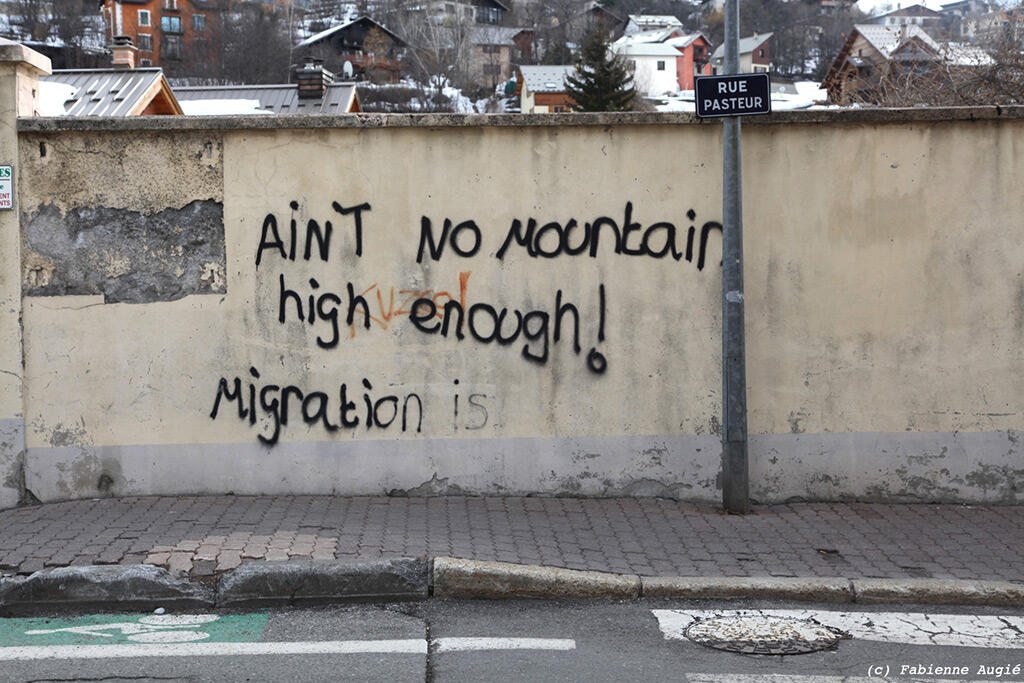 RUE
PASTEUR
ES
ENT
NTS
AiNT NO Mountain
high enough!
Migration is
(c) Fabienne Augié